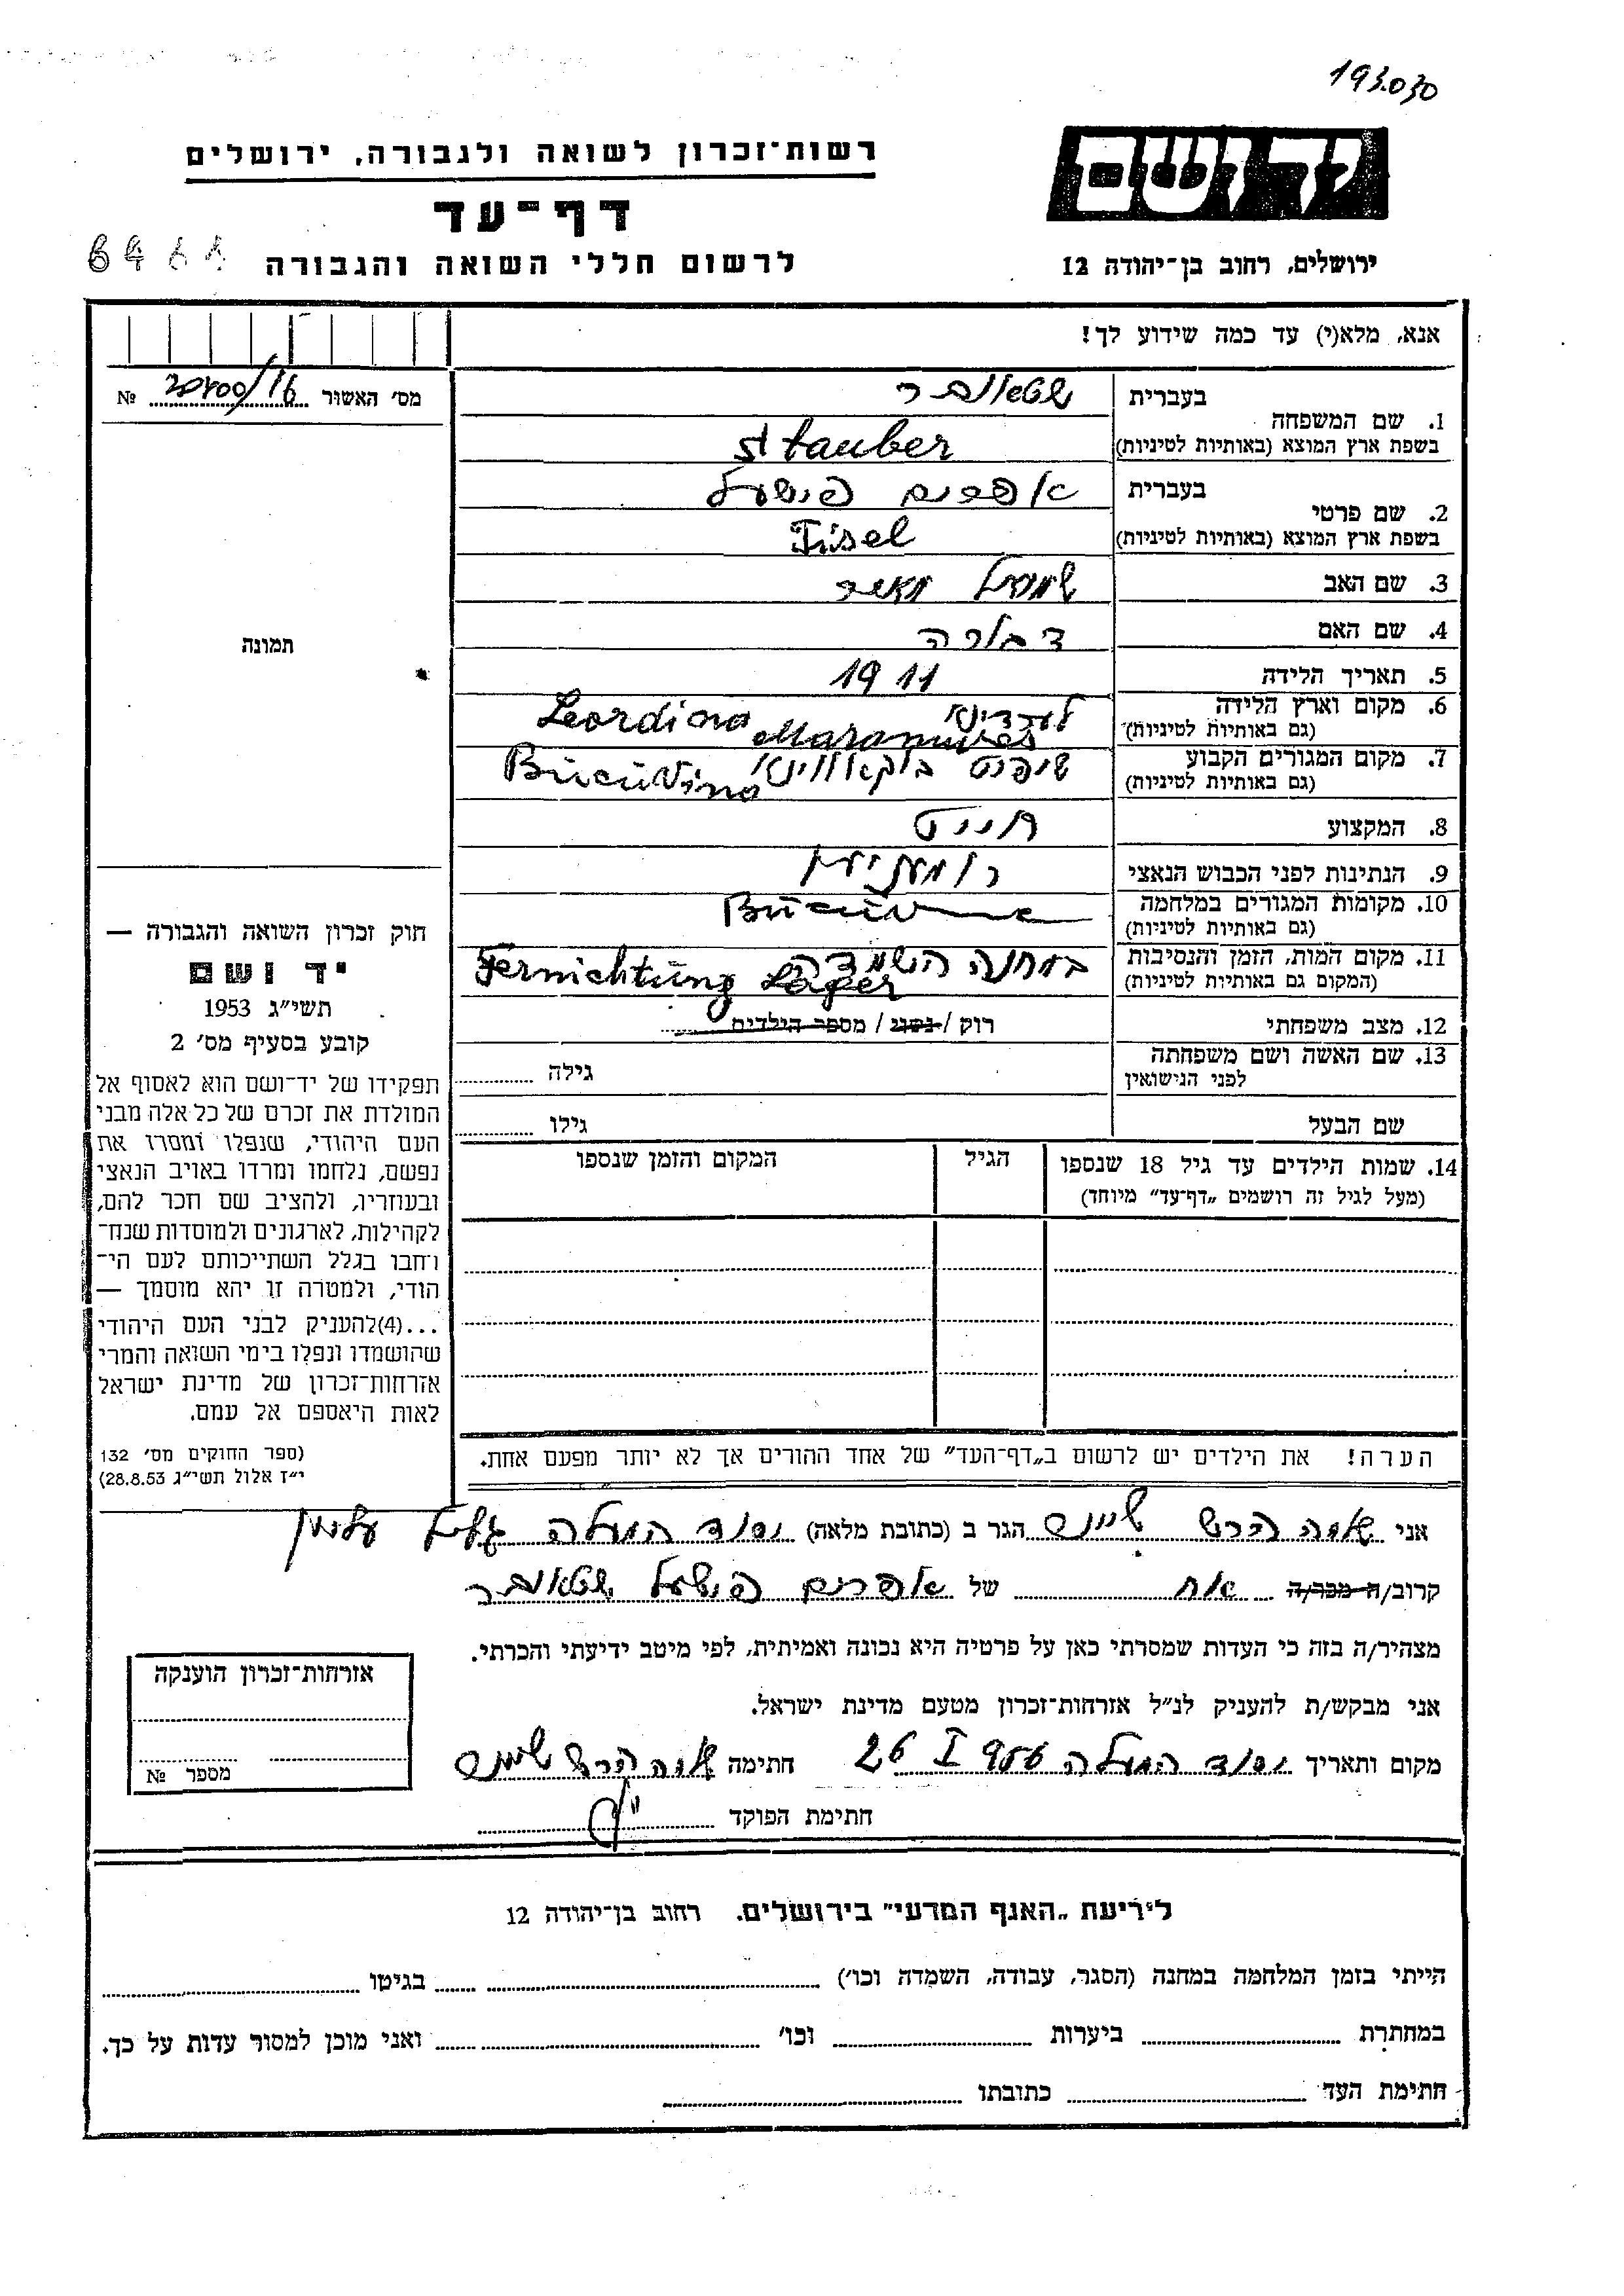 193.030
יד ושם
רשות־זכרון לשואה ולגבורה, ירושלים
דף־עד
ירושלים, רחוב בן־יהודה 12
לרשום חללי השואה והגבורה
אנא, מלא(י) עד כמה שידוע לך!
מס׳ האשור 20400/16 №
תמונה
1. שם המשפחה
בעברית שטאובר
בשפת ארץ המוצא (באותיות לטיניות) Stauber
2. שם פרטי
בעברית אפרים פישעל
בשפת ארץ המוצא (באותיות לטיניות) Fisel
3. שם האב שמואל מאיר
4. שם האם דבורה
5. תאריך הלידה 1911
6. מקום וארץ הלידה לעדינא Leordina
(גם באותיות לטיניות) Maramures
7. מקום המגורים הקבוע בוקאווינא Bucuvina
(גם באותיות לטיניות)
8. המקצוע חייט
9. הנתינות לפני הכבוש הנאצי
10. מקומות המגורים במלחמה
(גם באותיות לטיניות)
11. מקום המות, הזמן והנסיבות במחנה השמדה
(המקום גם באותיות לטיניות) Fernichtung Lager
12. מצב משפחתי רוק / נשוי / מספר הילדים
13. שם האשה ושם משפחתה
לפני הנישואין
גילה
שם הבעל גילו
14. שמות הילדים עד גיל 18 שנספו הגיל המקום והזמן שנספו
(מעל לגיל זה רושמים „דף־עד״ מיוחד)
הערה! את הילדים יש לרשום ב„דף־העד״ של אחד ההורים אך לא יותר מפעם אחת.
חוק זכרון השואה והגבורה —
יד ושם
תשי״ג 1953
קובע בסעיף מס׳ 2
תפקידו של יד־ושם הוא לאסוף אל
המולדת את זכרם של כל אלה מבני
העם היהודי, שנפלו ומסרו את
נפשם, נלחמו ומרדו באויב הנאצי
ובעוזריו, ולהציב שם וזכר להם,
לקהילות, לארגונים ולמוסדות שנח־
רבו בגלל השתייכותם לעם הי־
הודי, ולמטרה זו יהא מוסמך —
...(4)להעניק לבני העם היהודי
שהושמדו ונפלו בימי השואה והמרי
אזרחות־זכרון של מדינת ישראל
לאות היאספם אל עמם.
(ספר החוקים מס׳ 132
י״ז אלול תשי״ג 28.8.53)
אני הרש הגר ב (כתובת מלאה) יסוד המעלה גליל עליון
קרוב/ה מכר/ה אח של אפרים פישעל שטאובר
מצהיר/ה בזה כי העדות שמסרתי כאן על פרטיה היא נכונה ואמיתית, לפי מיטב ידיעתי והכרתי.
אני מבקש/ת להעניק לנ״ל אזרחות־זכרון מטעם מדינת ישראל.
מקום ותאריך יסוד המעלה 26 I 956 חתימה הרש
חתימת הפוקד
אזרחות־זכרון הוענקה
מספר №
לידיעת „האגף המדעי״ בירושלים. רחוב בן־יהודה 12
הייתי בזמן המלחמה במחנה (הסגר, עבודה, השמדה וכו׳) בגיטו
במחתרת ביערות וכו׳ ואני מוכן למסור עדות על כך.
חתימת העד כתובתו